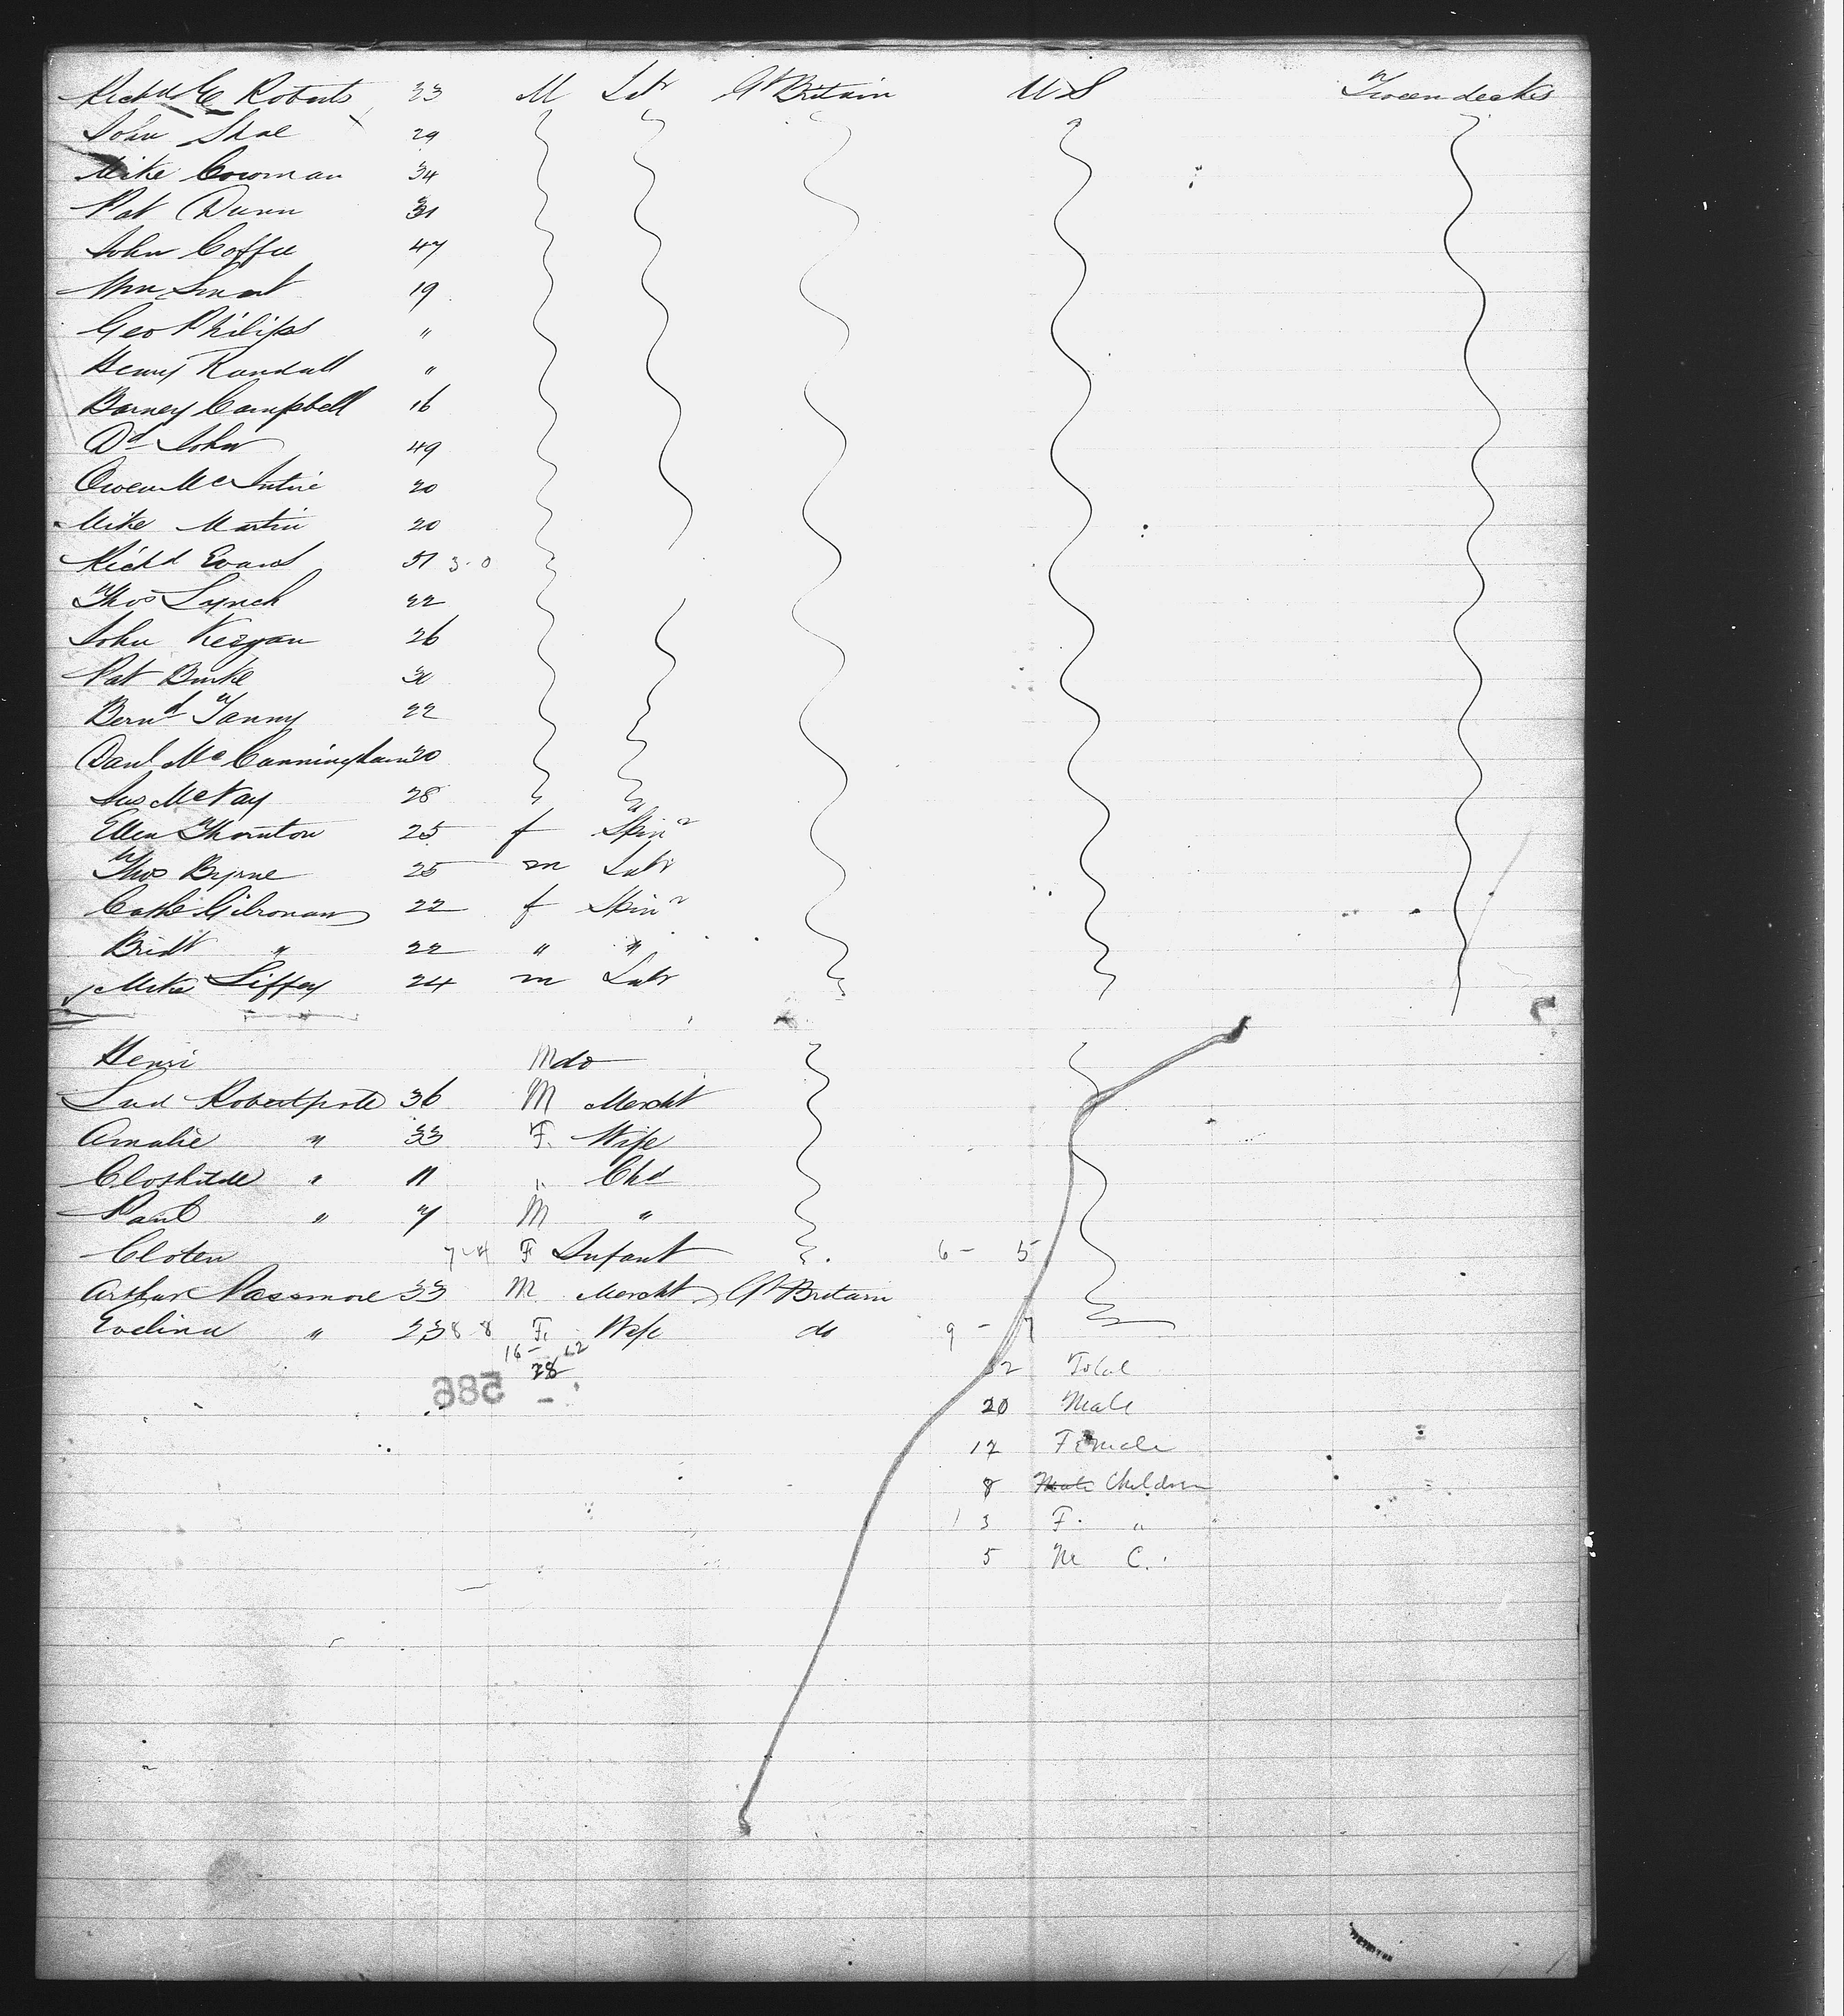 Richd E Roberts 23 M Labr Gt Britain U S Tween decks
John Shae 29
Mike Cowman 34
Pat Dunn 31
John Coffee 47
Wm Smart 19
Geo Philips "
Henry Randall "
Barney Campbell 16
Dd John 49
Owen McIntire 20
Mike Martin 20
Richd Evans 51 3-0
Thos Lynch 22
John Keegan 26
Pat Burke 30
Bernd Tanny 22
Danl McCunningham 20
Jas McVay 28
Ellen Thornton 25 f Spinr
Thos Byrne 25 m Labr
Cathe Gilronan 22 f Spinr
Bridt " 22 " "
Mike Liffey 24 m Labr
Henri M do
Lud 36 M Mercht
Amalie " 33 F. Wife
" 11 " Chd
Paul " 7 M "
Cloten 7-4 F Infant 6 - 5
Arthur Passmore 33 M Mercht Gt Britain
Evelina " 23 8 8 F. Wife do 9 - 7
16 - 12
28 Total
586
20 Male
12 Female
8 Male Children
3 F. "
5 M C.